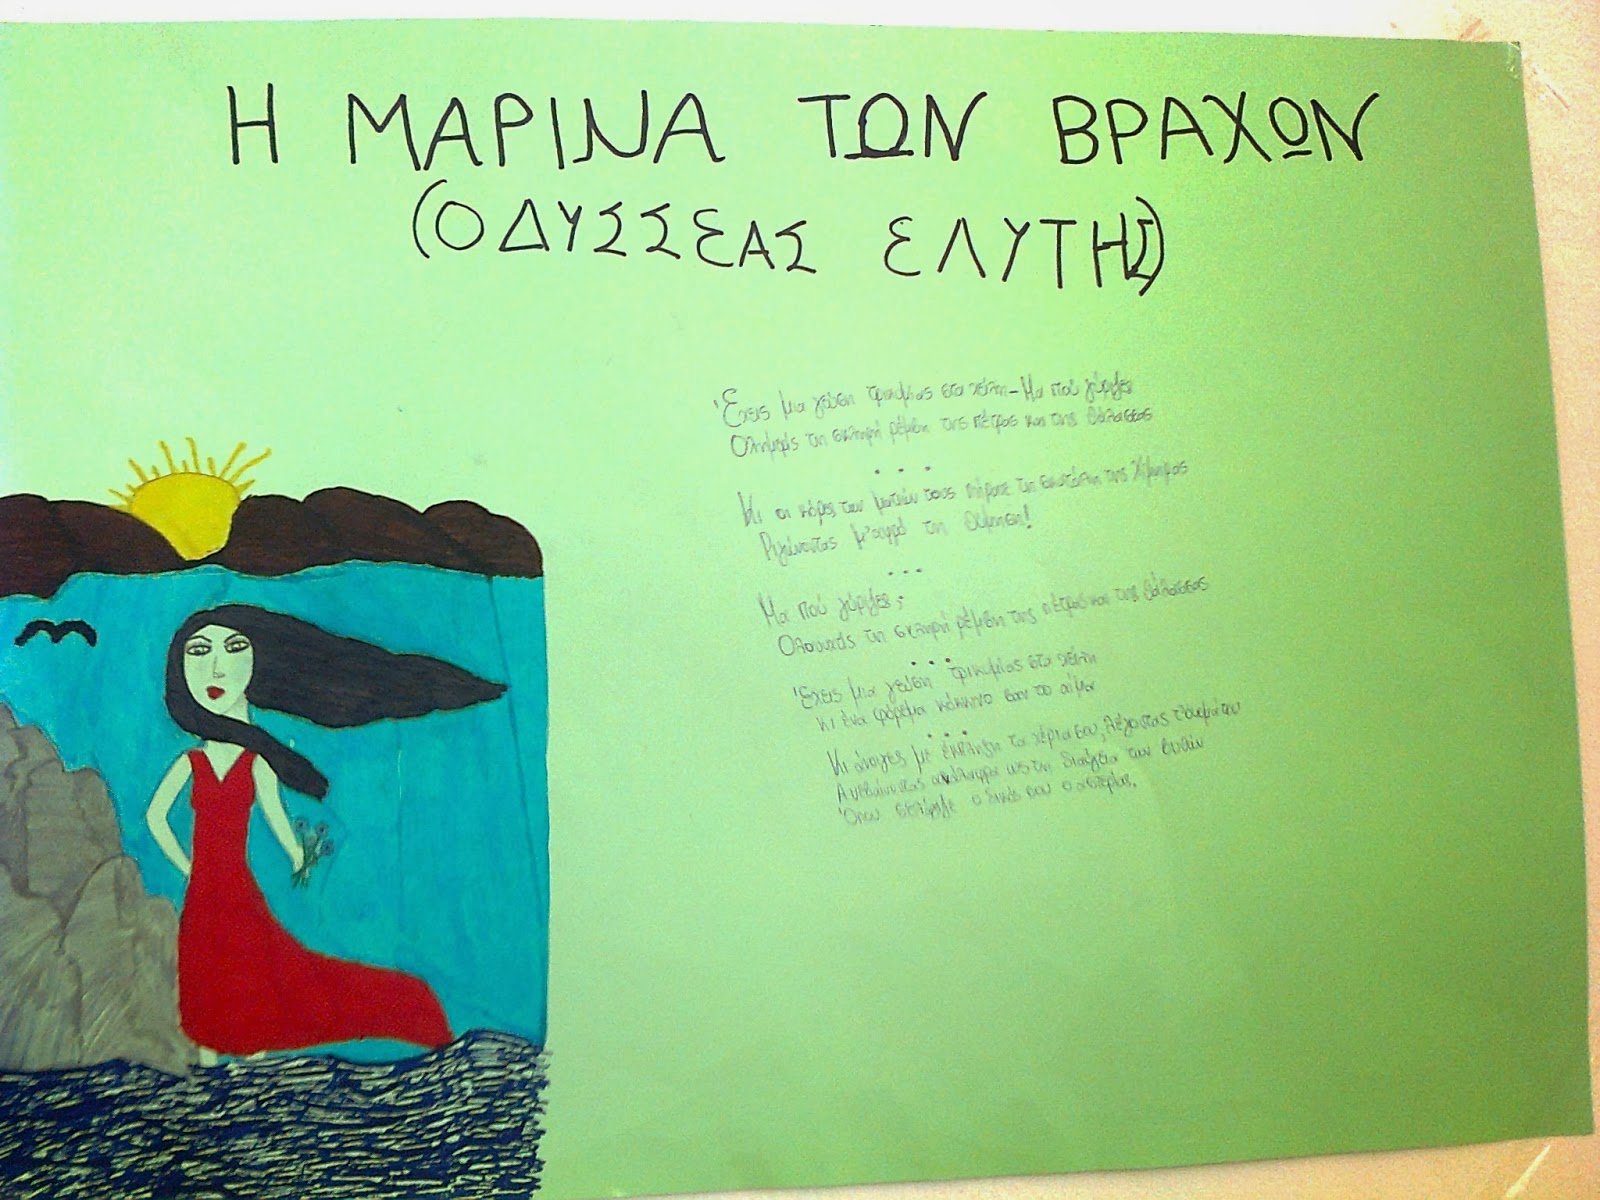 Η ΜΑΡΙΝΑ ΤΩΝ ΒΡΑΧΩΝ
(ΟΔΥΣΣΕΑΣ ΕΛΥΤΗΣ)
Έχεις μια γεύση τρικυμίας στα χείλη - Μα πού γύριζες
Ολημερίς τη σκληρή ρέμβη της πέτρας και της θάλασσας
...
Κι οι κόρες των ματιών τους πήρανε τη σκυτάλη της Χίμαιρας
Ριγώνοντας μ' αφρό τη θύμηση!
...
Μα πού γύριζες;
Ολονυχτίς τη σκληρή ρέμβη της πέτρας και της θάλασσας
...
Έχεις μια γεύση τρικυμίας στα χείλη
κι ένα φόρεμα κόκκινο σαν το αίμα
...
Κι άνοιγες με έκπληξη τα χέρια σου, λέγοντας τ' όνομα του
Ανεβαίνοντας ανάλαφρα ως τη διαύγεια των βυθών
Όπου σελάγιζε ο δικός σου ο αστερίας.